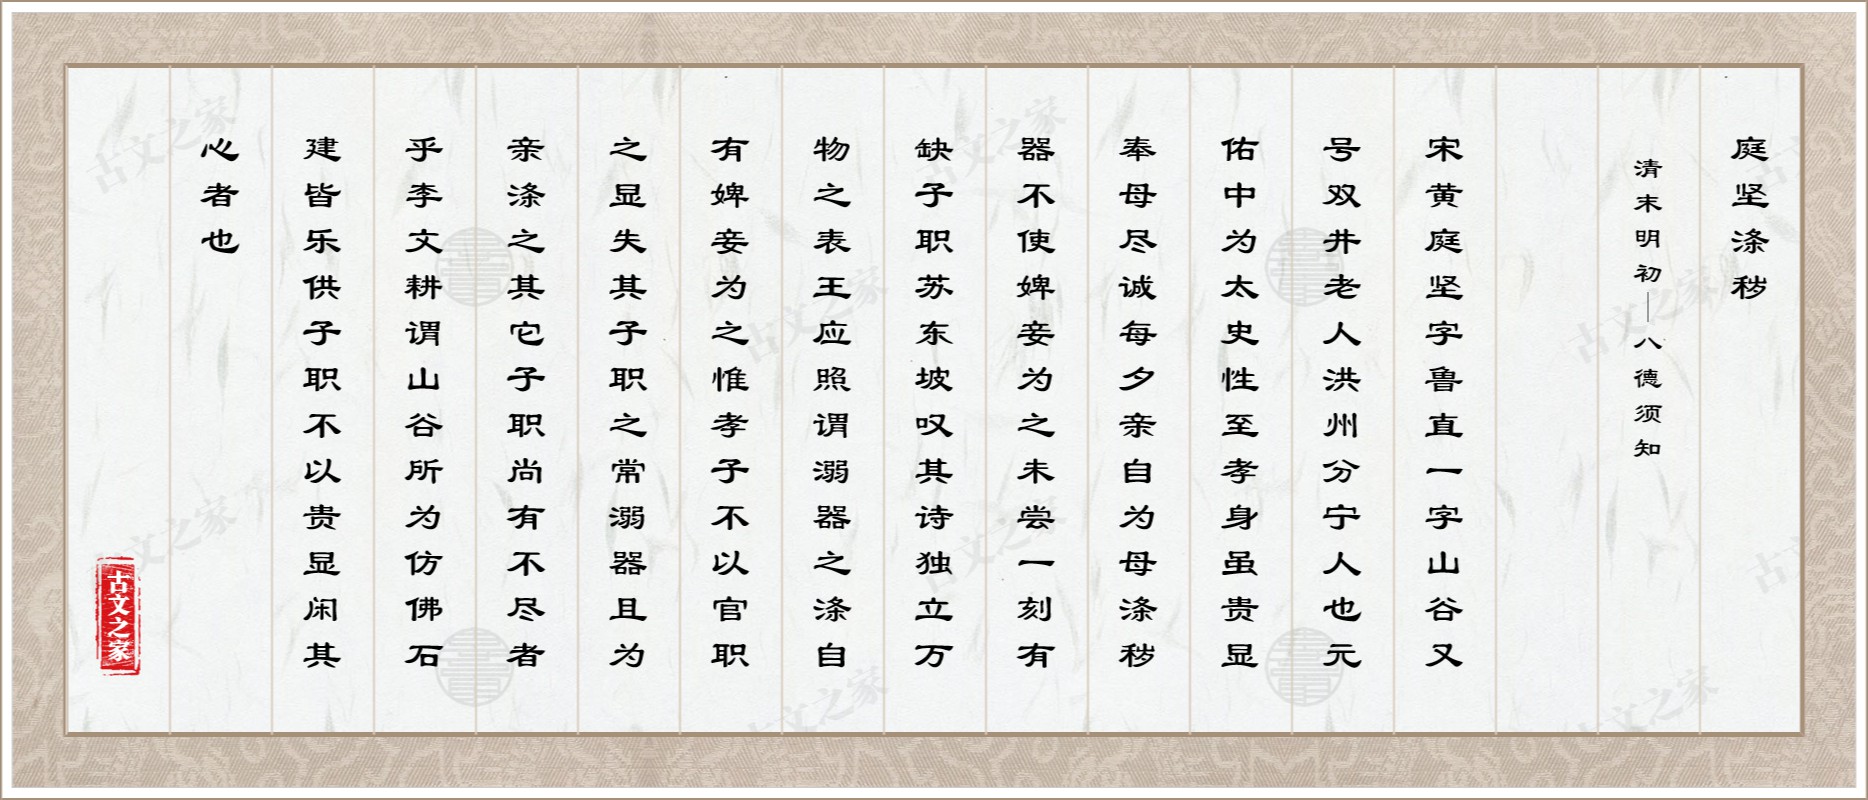 庭坚涤秽
清末明初—八德须知
宋黄庭坚字鲁直一字山谷又
号双井老人洪州分宁人也元
佑中为太史性至孝身虽贵显
奉母尽诚每夕亲自为母涤秽
器不使婢妾为之未尝一刻有
缺子职苏东坡叹其诗独立万
物之表王应照谓溺器之涤自
有婢妾为之惟孝子不以官职
之显失其子职之常溺器且为
亲涤之其它子职尚有不尽者
乎李文耕谓山谷所为仿佛石
建皆乐供子职不以贵显闲其
心者也
古文之家